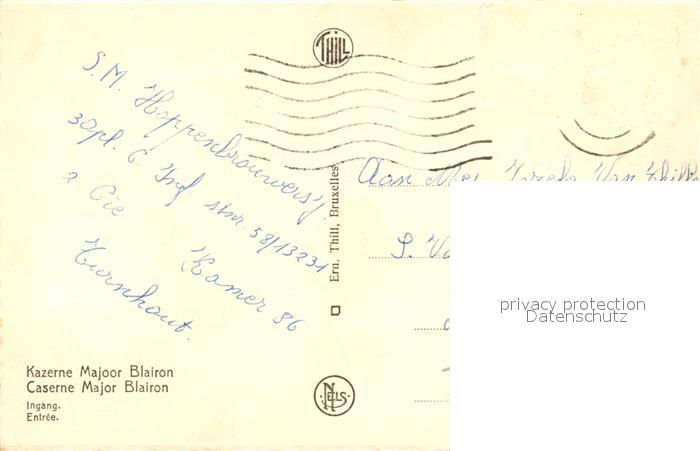 THILL
S. M. Hoppenbrouwers J.
30pl. C. Inf. stnr. 58/13231
2 Cie Kamer 86
Turnhout.
Ern. Thill, Bruxelles
NELS
Aan Van
S.
privacy protection
Datenschutz
Kazerne Majoor Blairon
Caserne Major Blairon
Ingang.
Entrée.